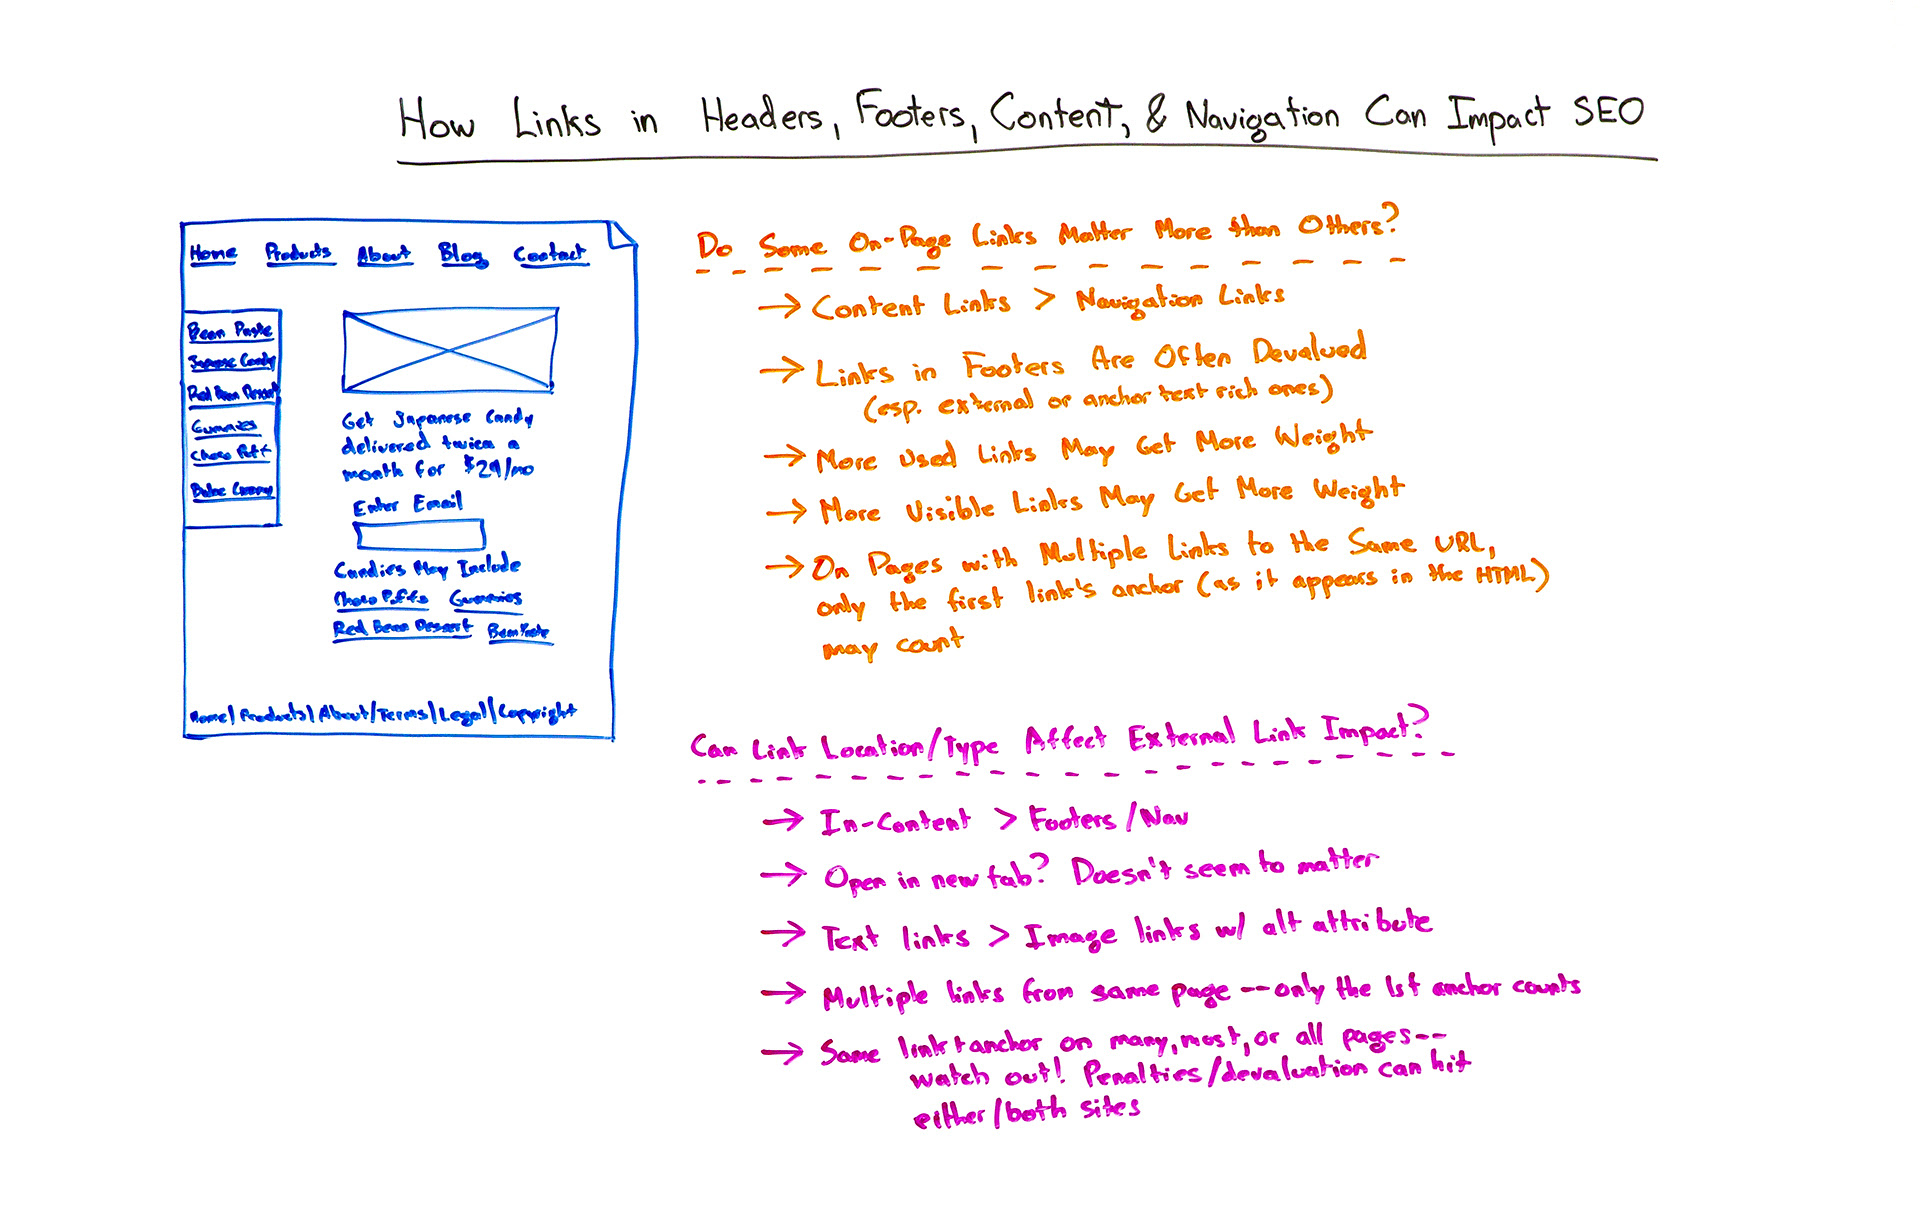 How Links in Headers, Footers, Content, & Navigation Can Impact SEO
Home Products About Blog Contact
Bean Paste
Japanese Candy
Red Bean Dessert
Gummies
Choco Puff
Get Japanese Candy
delivered twice a
month for $29/mo
Enter Email
Candies May Include
Choco Puffs Gummies
Red Bean Dessert Bean Paste
Home/Products/About/Terms/Legal/Copyright
Do Some On-Page Links Matter More than Others?
→ Content Links > Navigation Links
→ Links in Footers Are Often Devalued
(esp. external or anchor text rich ones)
→ More Used Links May Get More Weight
→ More Visible Links May Get More Weight
→ On Pages with Multiple Links to the Same URL,
only the first link's anchor (as it appears in the HTML)
may count
Can Link Location/Type Affect External Link Impact?
→ In-Content > Footers/Nav
→ Open in new tab? Doesn't seem to matter
→ Text links > Image links w/ alt attribute
→ Multiple links from same page--only the 1st anchor counts
→ Same link+anchor on many, most, or all pages--
watch out! Penalties/devaluation can hit
either/both sites